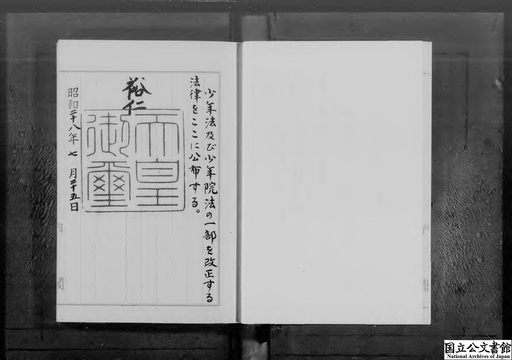 少年法及び少年院法の一部を改正する
法律をここに公布する。
裕仁
天皇
御璽
昭和二十八年七月二十五日
国立公文書館
National Archives of Japan